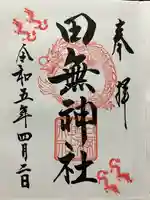 奉拝
田無神社
令和五年四月二日